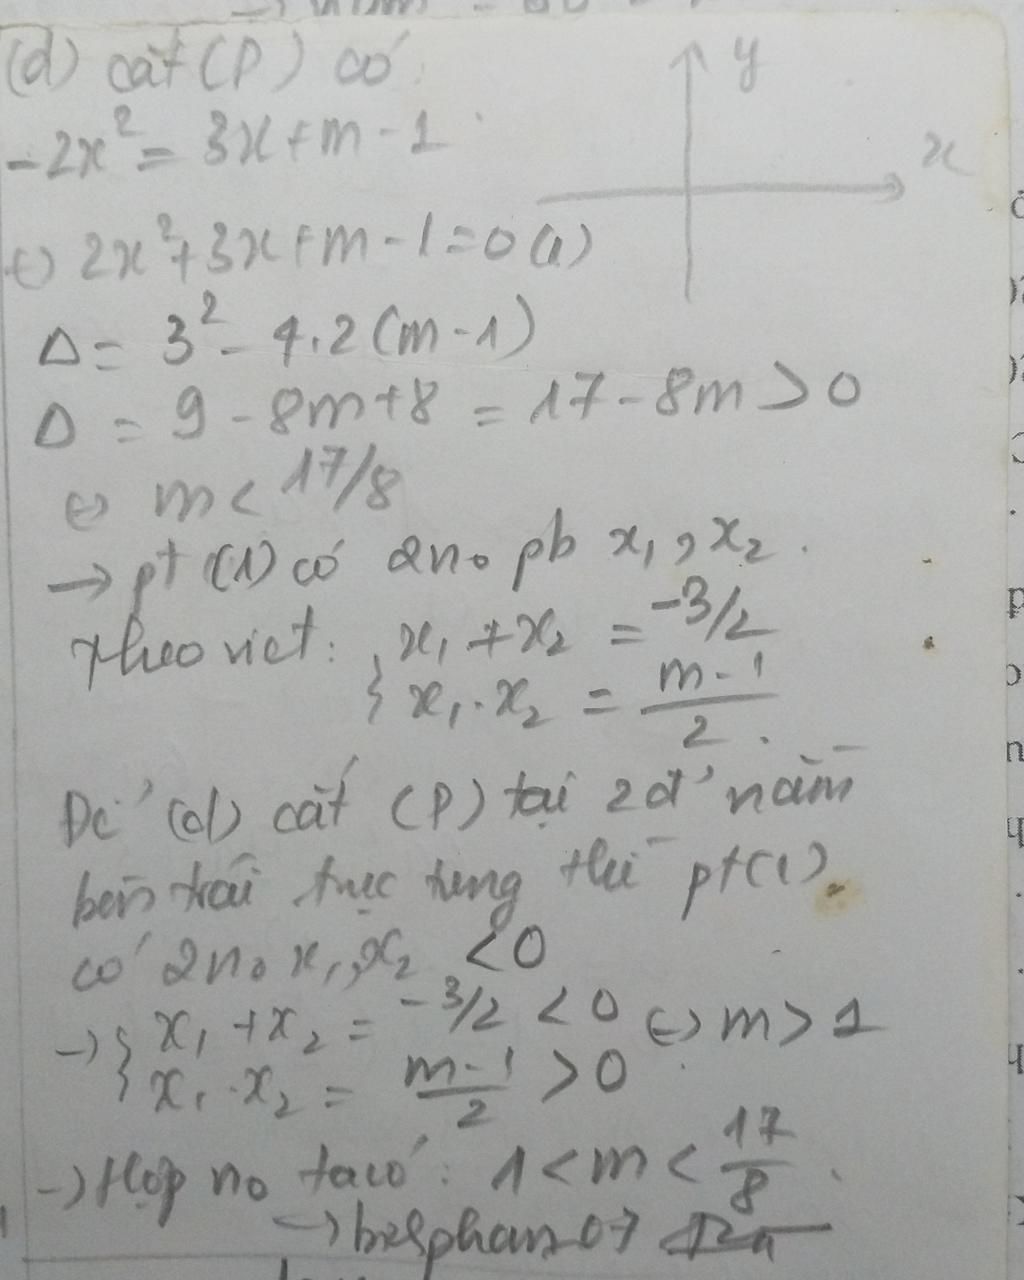 (d) cắt (P) có:
y
-2x² = 3x + m - 1
x
⇔ 2x² + 3x + m - 1 = 0 (1)
Δ = 3² - 4.2 (m - 1)
Δ = 9 - 8m + 8 = 17 - 8m > 0
⇔ m < 17/8
→ pt (1) có 2 no pb x₁, x₂.
Theo viet: { x₁ + x₂ = -3/2
{ x₁ . x₂ = m - 1 / 2.
Để (d) cắt (P) tại 2 đ' nằm
bên trái trục tung thì pt (1)
có 2 no x₁, x₂ < 0
→ { x₁ + x₂ = -3/2 < 0 ⇔ m > 1
{ x₁ . x₂ = m - 1 / 2 > 0
→ Hợp no ta có: 1 < m < 17/8.